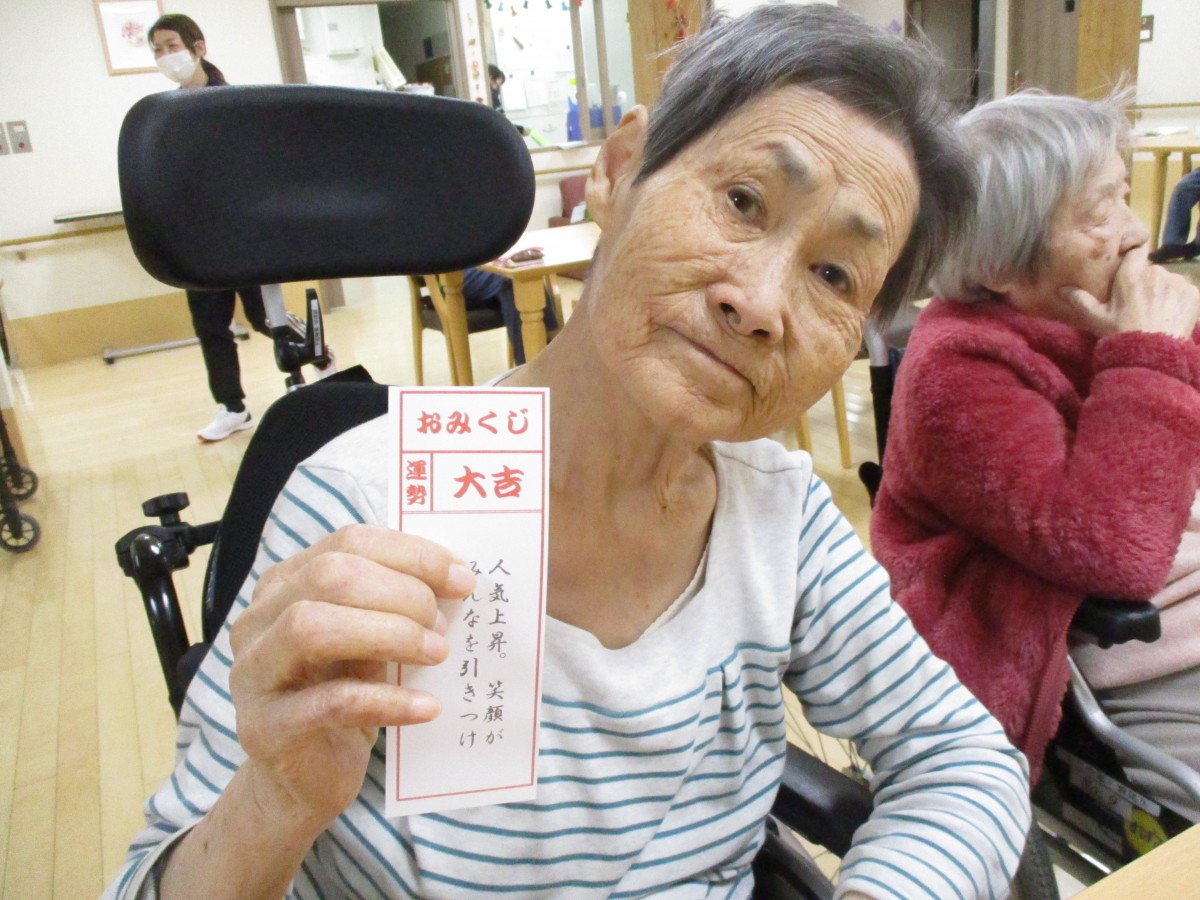 おみくじ
運勢
大吉
人気上昇。笑顔が
みんなを引きつけ